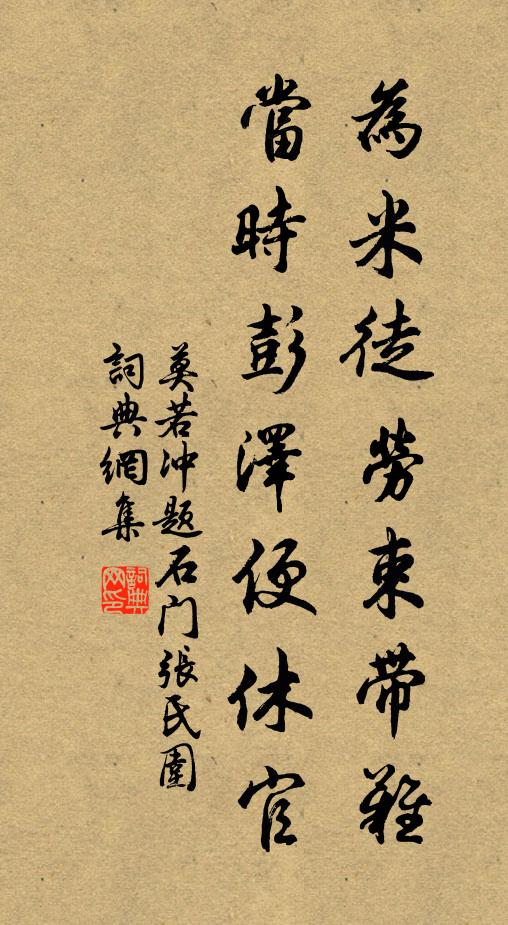 為米徒勞束帶難
當時彭澤便休官
莫若沖題石门張氏園
詞典網集
詞典网印